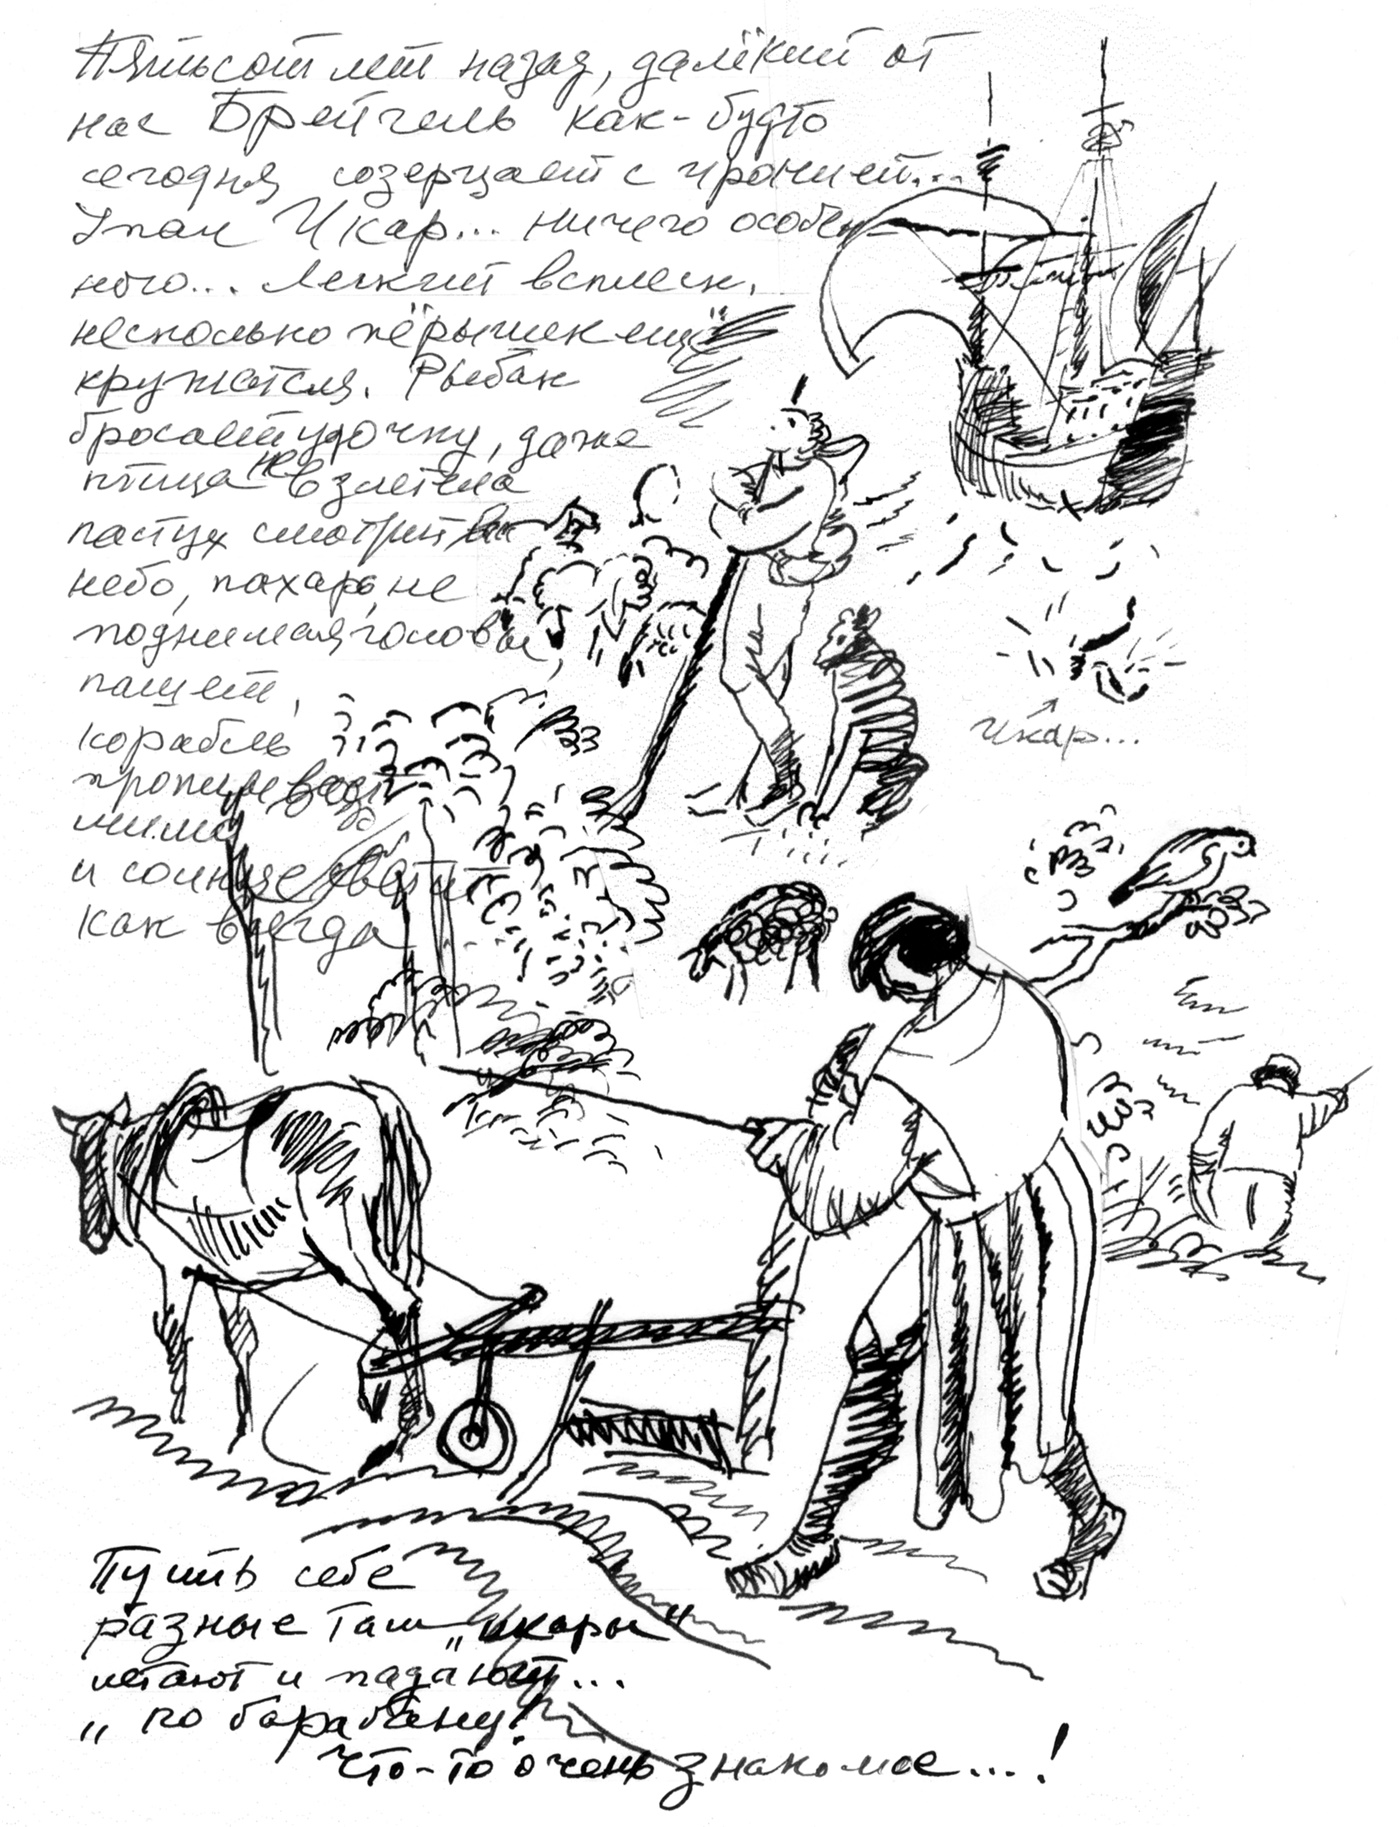 Пятьсот лет назад, далёкий от
нас Брейгель как-будто
сегодня созерцает с иронией...
Упал Икар... ничего особен
ного... легкий всплеск,
несколько пёрышек ещё
кружатся. Рыбак
бросает удочку, даже
птица не взлетела
пастух смотрит в
небо, пахарь, не
поднимая головы,
пашет,
корабль
проплывает
мимо
и солнце светит
как всегда
Икар...
Пусть себе
разные там „икары“
летают и падают...
„по барабану“!
Что-то очень знакомое...!